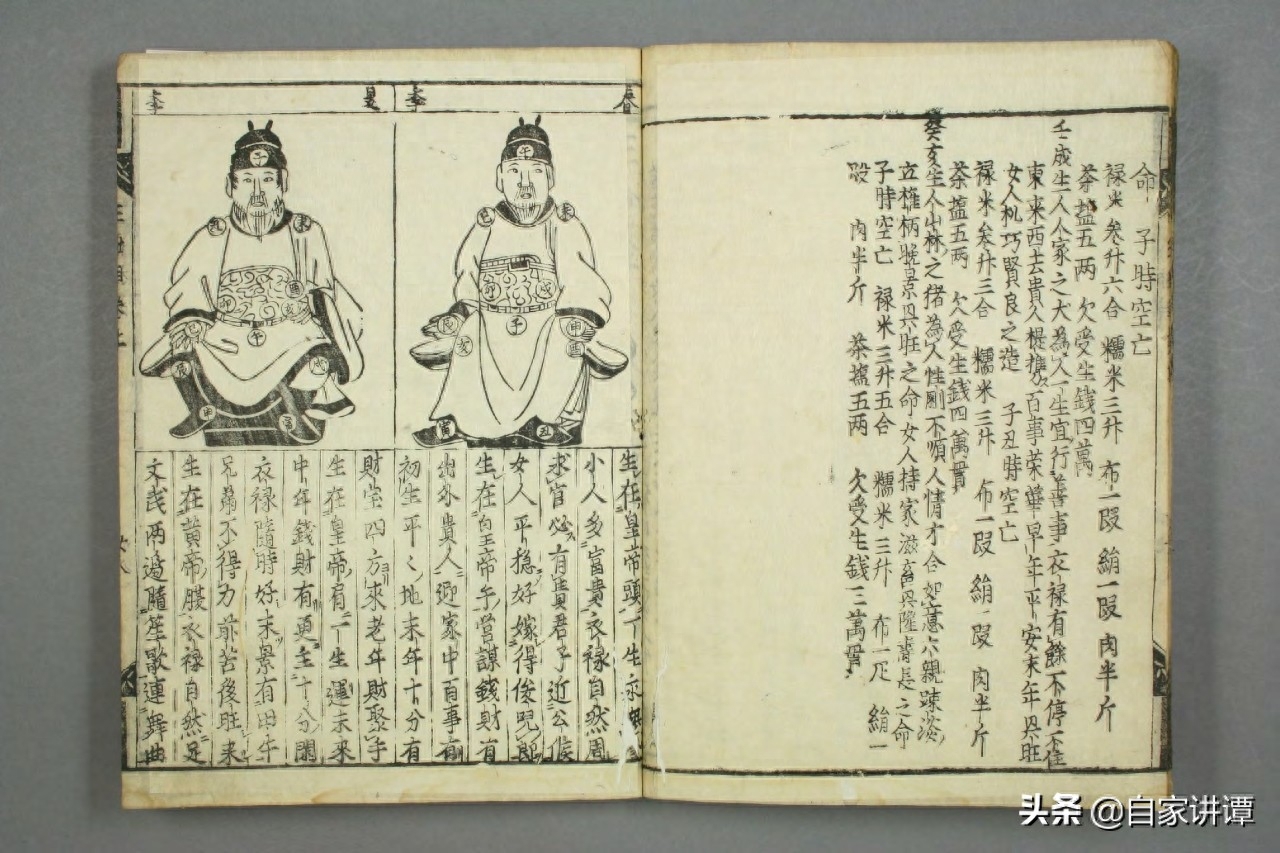 命 子時空亡
禄米叁升六合 糯米三升 布一叚 絹一叚 肉半斤
茶盐五两 欠受生錢四萬
壬戌生人人家之犬為人一生宜行善事衣禄有餘不停不住
東來西去貴人提携百事荣華早年平安末年興旺
女人机巧賢良之造 子丑時空亡
禄米叁升三合 糯米三升 布一叚 絹一叚 肉半斤
茶盐五两 欠受生錢四萬貫
癸亥生人出林之猪為人性剛不順人情才合如意六親踈淡
立權柄 興旺之命女人持家滋 興隆 長之命
子時空亡 禄米三升五合 糯米三升 布一疋 絹一
叚 肉半斤 茶塩五两 欠受生錢三萬貫
春季
夏季
午 巳 未 子 申 酉 亥 丑 寅
午 未 酉 卯 戌 辰 申
生在皇帝頭一生永
小人多富貴衣禄自然周
求官必有貴君子近公侯
女人平穏好嫁得俊児郎
生在皇帝手营謀錢財有
出外貴人迎家中百事有
初生平々地末年十分有
財宝四方來老年財聚手
生在皇帝肩一生運未来
中年錢財有更主十分開
衣禄隨時好末景有田牛
兄弟不得力前苦後旺来
生在黄帝腹衣禄自然足
文武两邉隨笙歌連舞曲
头条 @自家讲谭